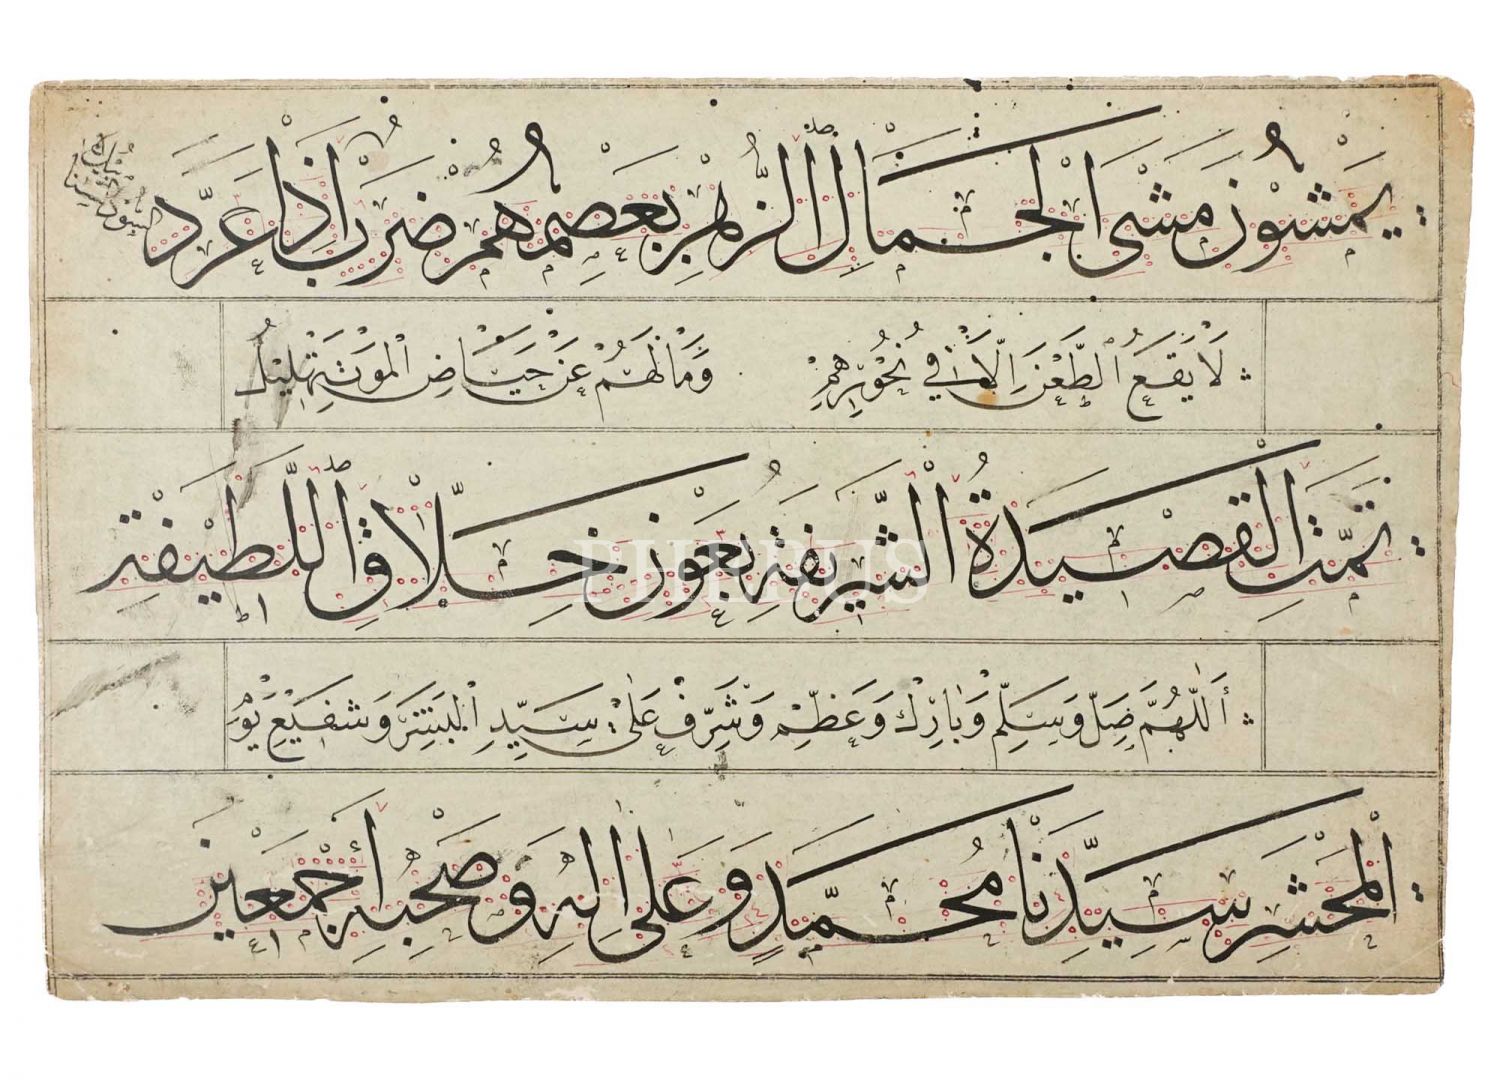 يَمْشُونَ مَشْىَ الْجِمَالِ الزُّهْرِ يَعْصِمُهُمْ ضَرْبٌ اِذَا عَرَّدَ
السُّودُ التَّنَابِيلُ
لَا يَقَعُ الطَّعْنُ اِلَّا فِي نُحُورِهِمِ وَمَا لَهُمْ عَنْ حِيَاضِ الْمَوْتِ تَهْلِيلُ
تَمَّتِ الْقَصِيدَةُ الشَّرِيفَةُ بِعَوْنِ خَلَّاقِ اللَّطِيفَةِ
PHEBUS
اَللّٰهُمَّ صَلِّ وَسَلِّمْ وَبَارِكْ وَعَظِّمْ وَشَرِّفْ عَلٰى سَيِّدِ الْبَشَرِ وَشَفِيعِ يَوْمِ
الْمَحْشَرِ سَيِّدِنَا مُحَمَّدٍ وَعَلٰى اٰلِهِ وَصَحْبِهِ أَجْمَعِينَ